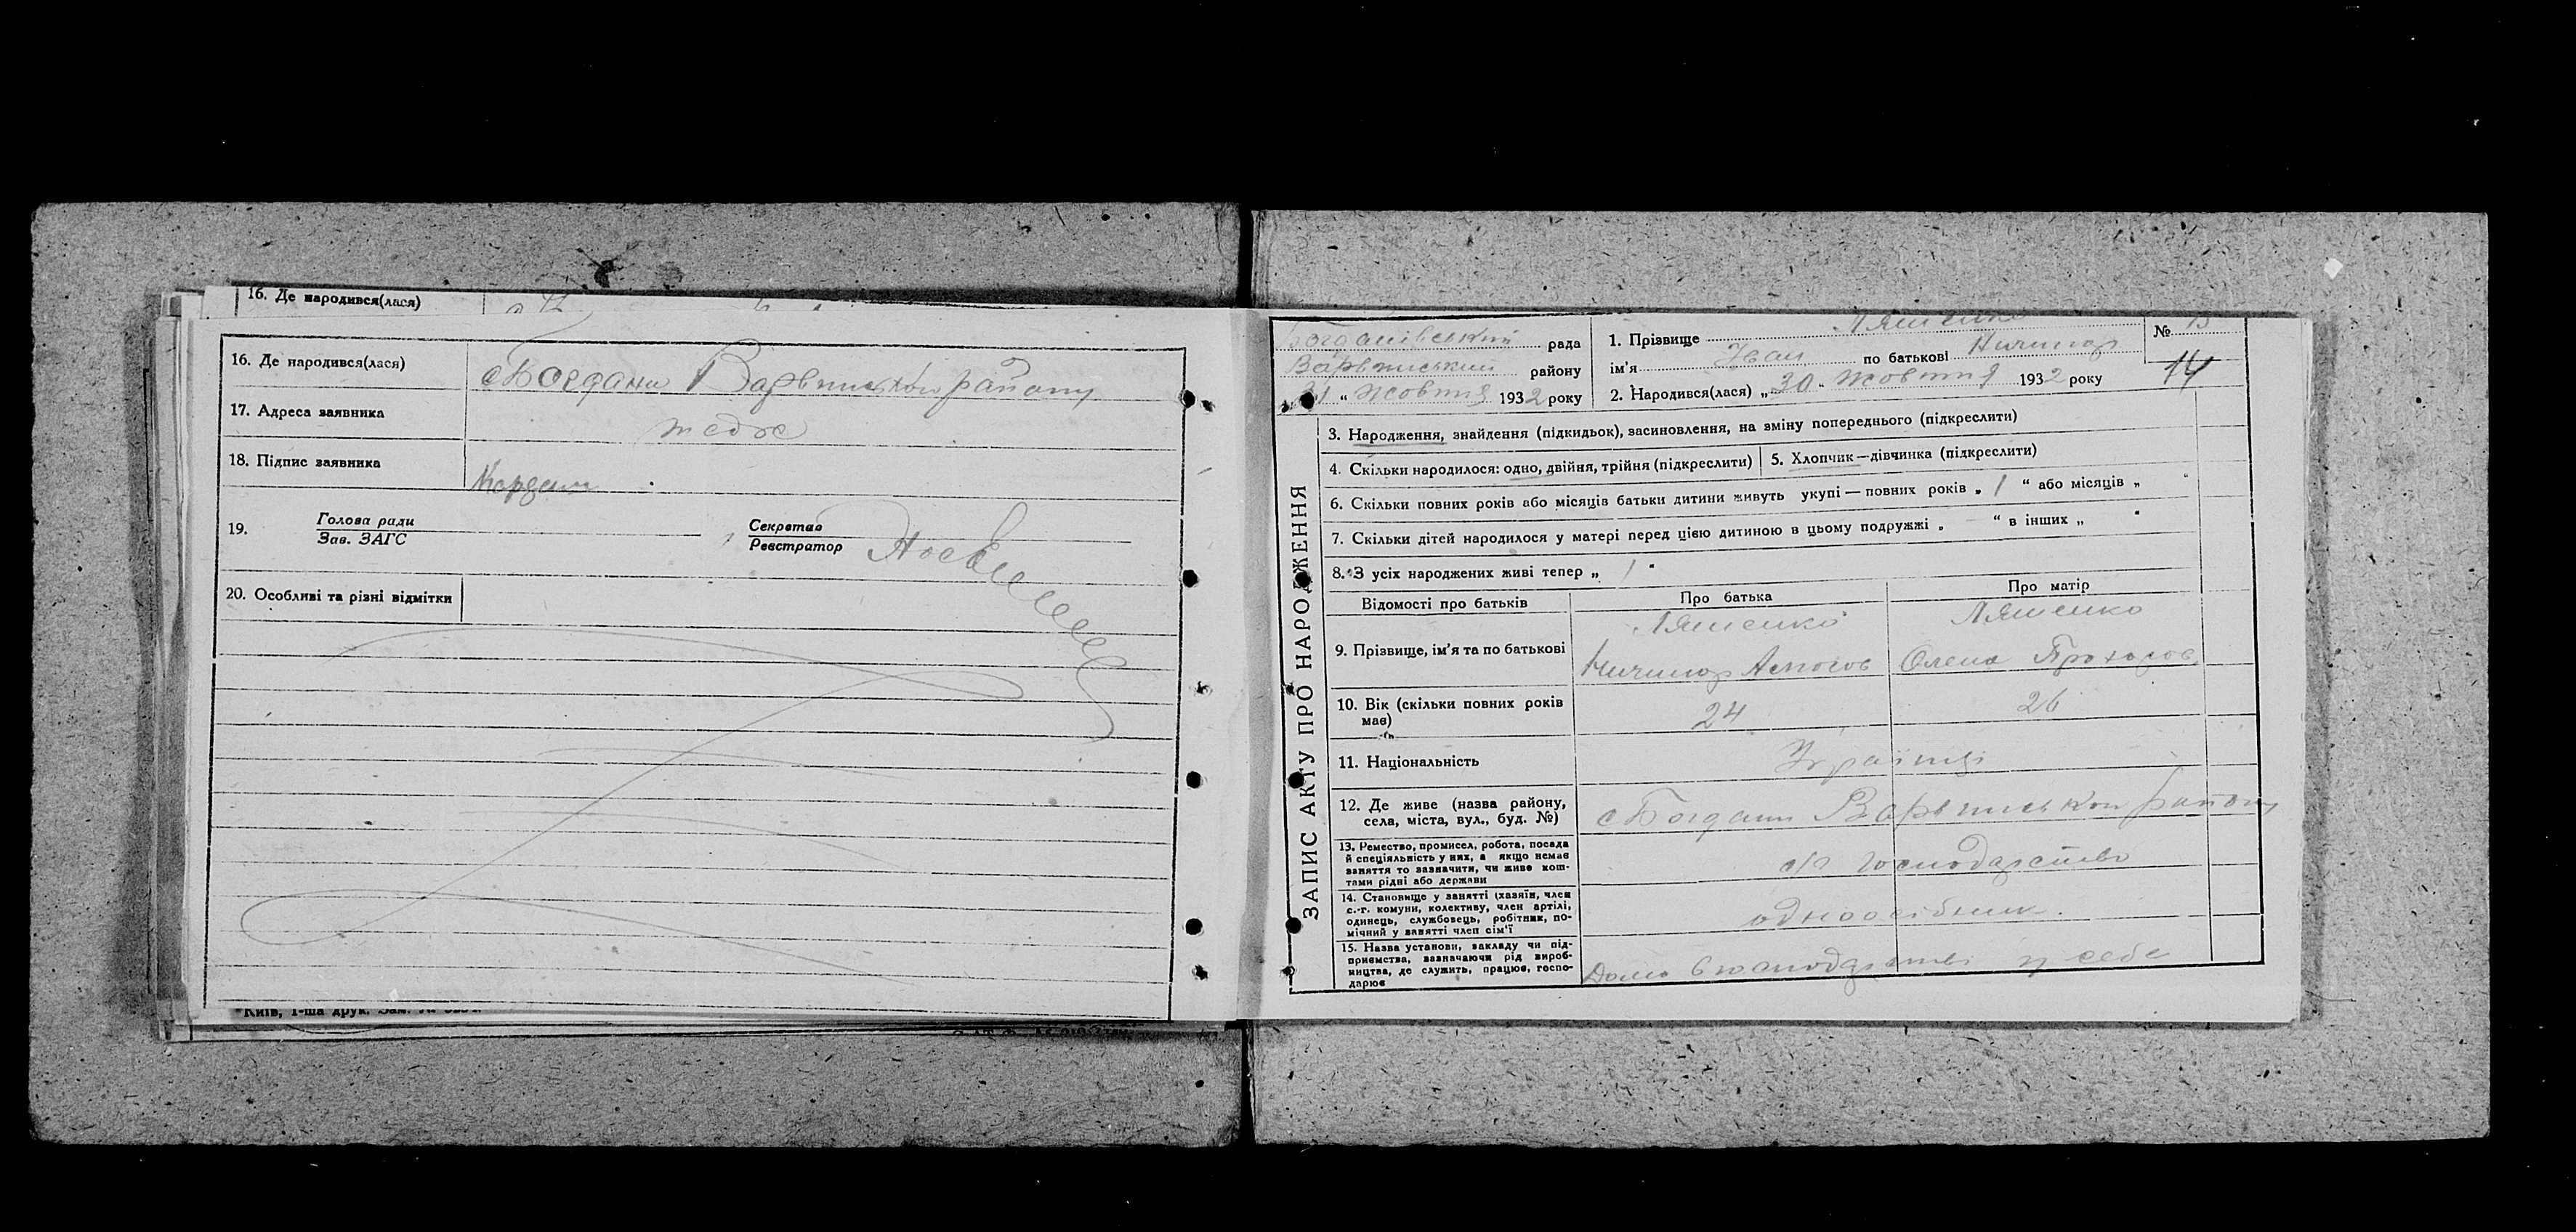 16. Де народився(лася)
16. Де народився(лася) с Богдани Варвинськои району
17. Адреса заявника тєдже
18. Підпис заявника
19. Голова ради
Зав. ЗАГС
Секретар
Реєстратор
20. Особливі та різні відмітки
Київ, 1-ша друк. Зам.
Богданівський рада
Варвинський району
31 „ жовтня 1932 року
1. Прізвище Ляшенко
ім'я Іван по батькові Ничипор
2. Народився(лася) „ 30 „ жовтня 1932 року
№ 13
14
ЗАПИС АКТУ ПРО НАРОДЖЕННЯ
3. Народження, знайдення (підкидьок), засиновлення, на зміну попереднього (підкреслити)
4. Скільки народилося: одно, двійня, трійня (підкреслити) 5. Хлопчик—дівчинка (підкреслити)
6. Скільки повних років або місяців батьки дитини живуть укупі — повних років „ 1 “ або місяців „ “
7. Скільки дітей народилося у матері перед цією дитиною в цьому подружжі „ “ в інших „ “
8. З усіх народжених живі тепер „ 1 “
Відомості про батьків Про батька Про матір
9. Прізвище, ім'я та по батькові
Ляшенко
Ничипор
Ляшенко
Олена Прохоров
10. Вік (скільки повних років
має)
24 26
11. Національність Українці
12. Де живе (назва району,
села, міста, вул., буд. №)
с Богдани Варвинськои району
13. Ремество, промисел, робота, посада
й спеціяльність у них, а якщо немає
заняття то зазначити, чи живе кош-
тами рідні або держави
с/г господарство
14. Становище у занятті (хазяїн, член
с.-г. комуни, колективу, член артілі,
одинець, службовець, робітник, по-
мічний у занятті член сім'ї
одноосібник
15. Назва установи, закладу чи під-
приємства, зазначаючи рід вироб-
ництва, де служить, працює, госпо-
дарює
Дома в господарстві у себе